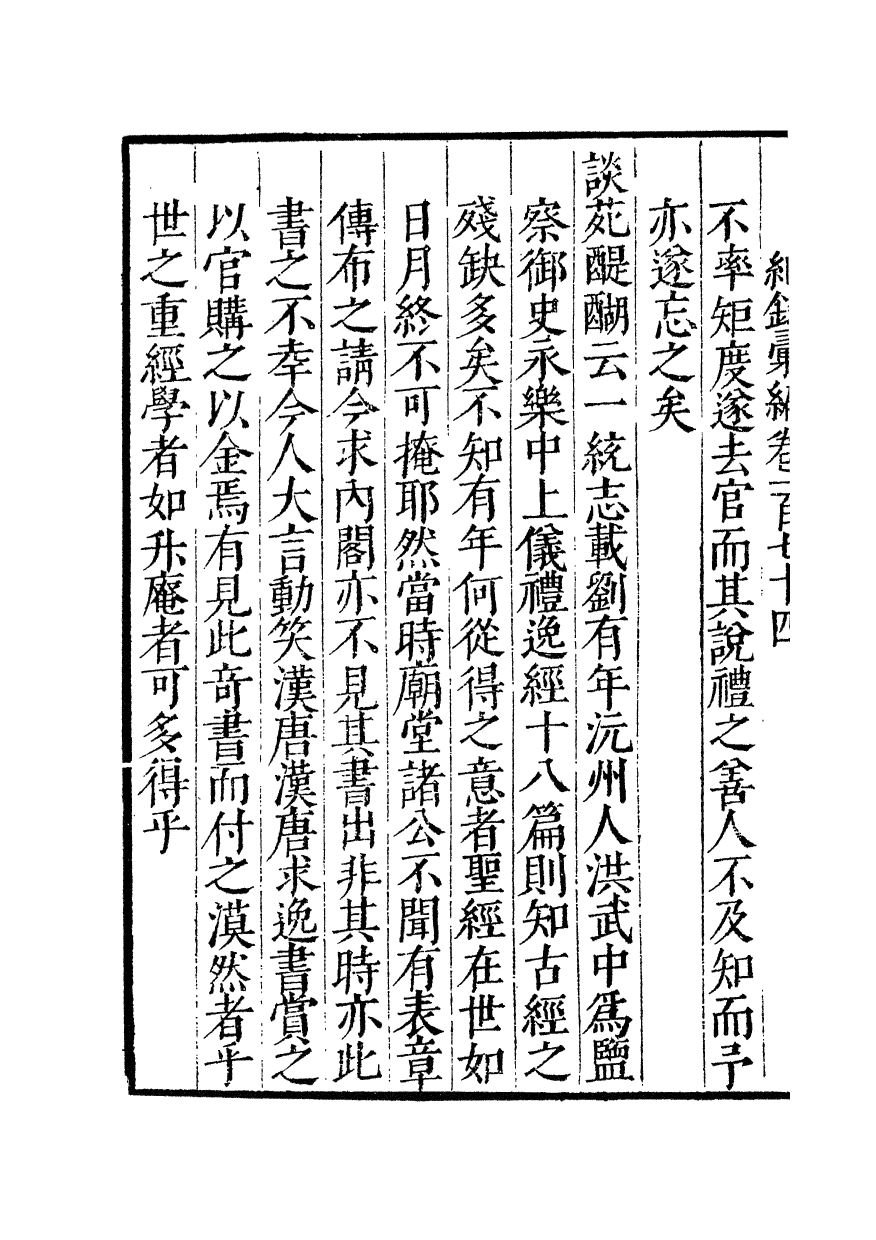 紀錄彙編卷一百七十四
不率矩度遂去官而其說禮之善人不及知而予
亦遂忘之矣
談苑醍醐云一統志載劉有年沅州人洪武中爲鹽
察御史永樂中上儀禮逸經十八篇則知古經之
殘缺多矣不知有年何從得之意者聖經在世如
日月終不可掩耶然當時廟堂諸公不聞有表章
傳布之請今求內閣亦不見其書出非其時亦此
書之不幸今人大言動笑漢唐漢唐求逸書賞之
以官購之以金焉有見此奇書而付之漠然者乎
世之重經學者如升庵者可多得乎